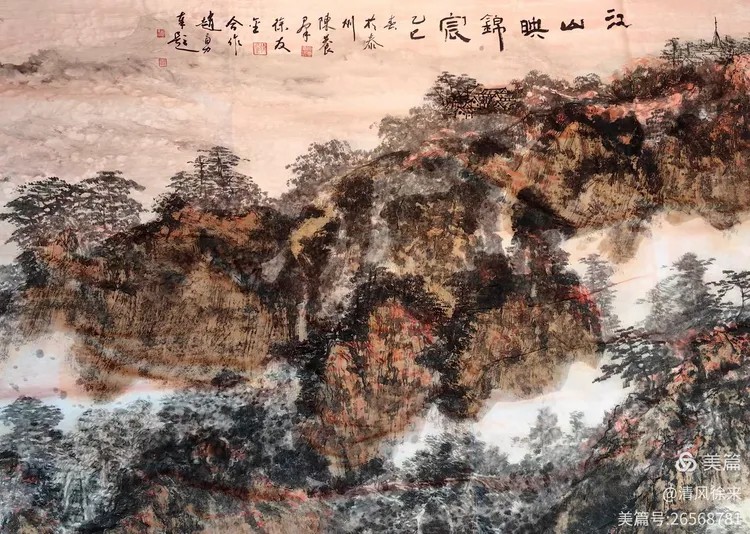 江山映錦宸
乙巳
春
於泰
州
陳晨
群
徐友
奎
合作
趙勇
奉題
美篇
@清风徐来
美篇号:26568781